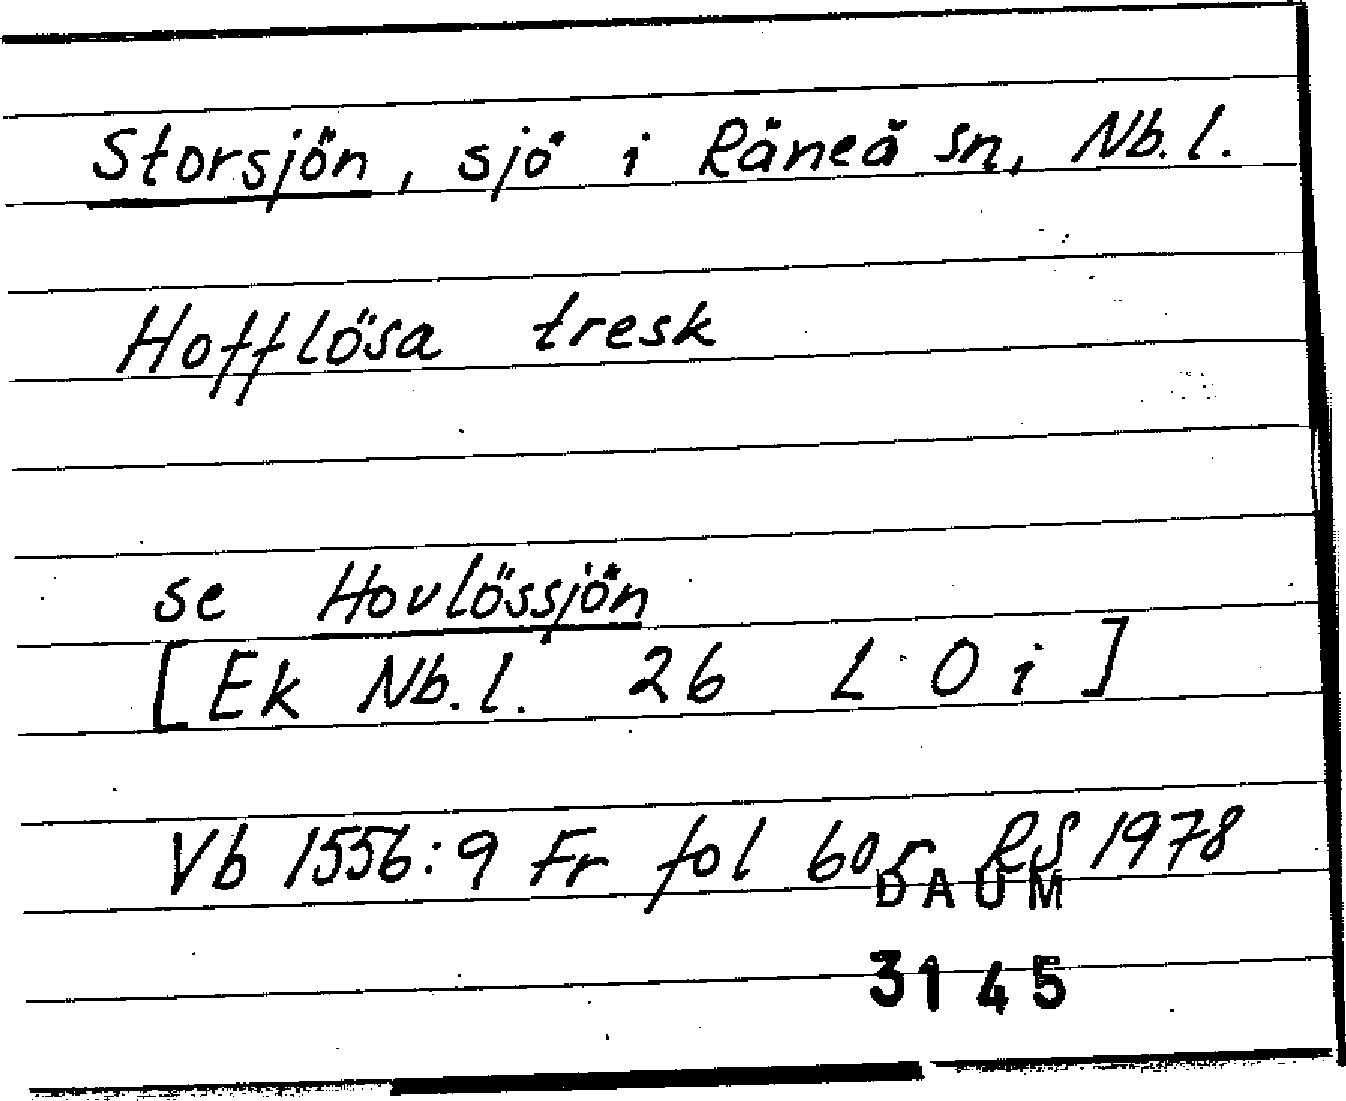 Storsjön, sjö i Råneå sn, Nb.l.
Hofflösa tresk
se Hovlössjön
[Ek Nb.l. 26 L 0 i]
Vb 1556:9 Fr fol 60r RS 1978
DAUM
3145